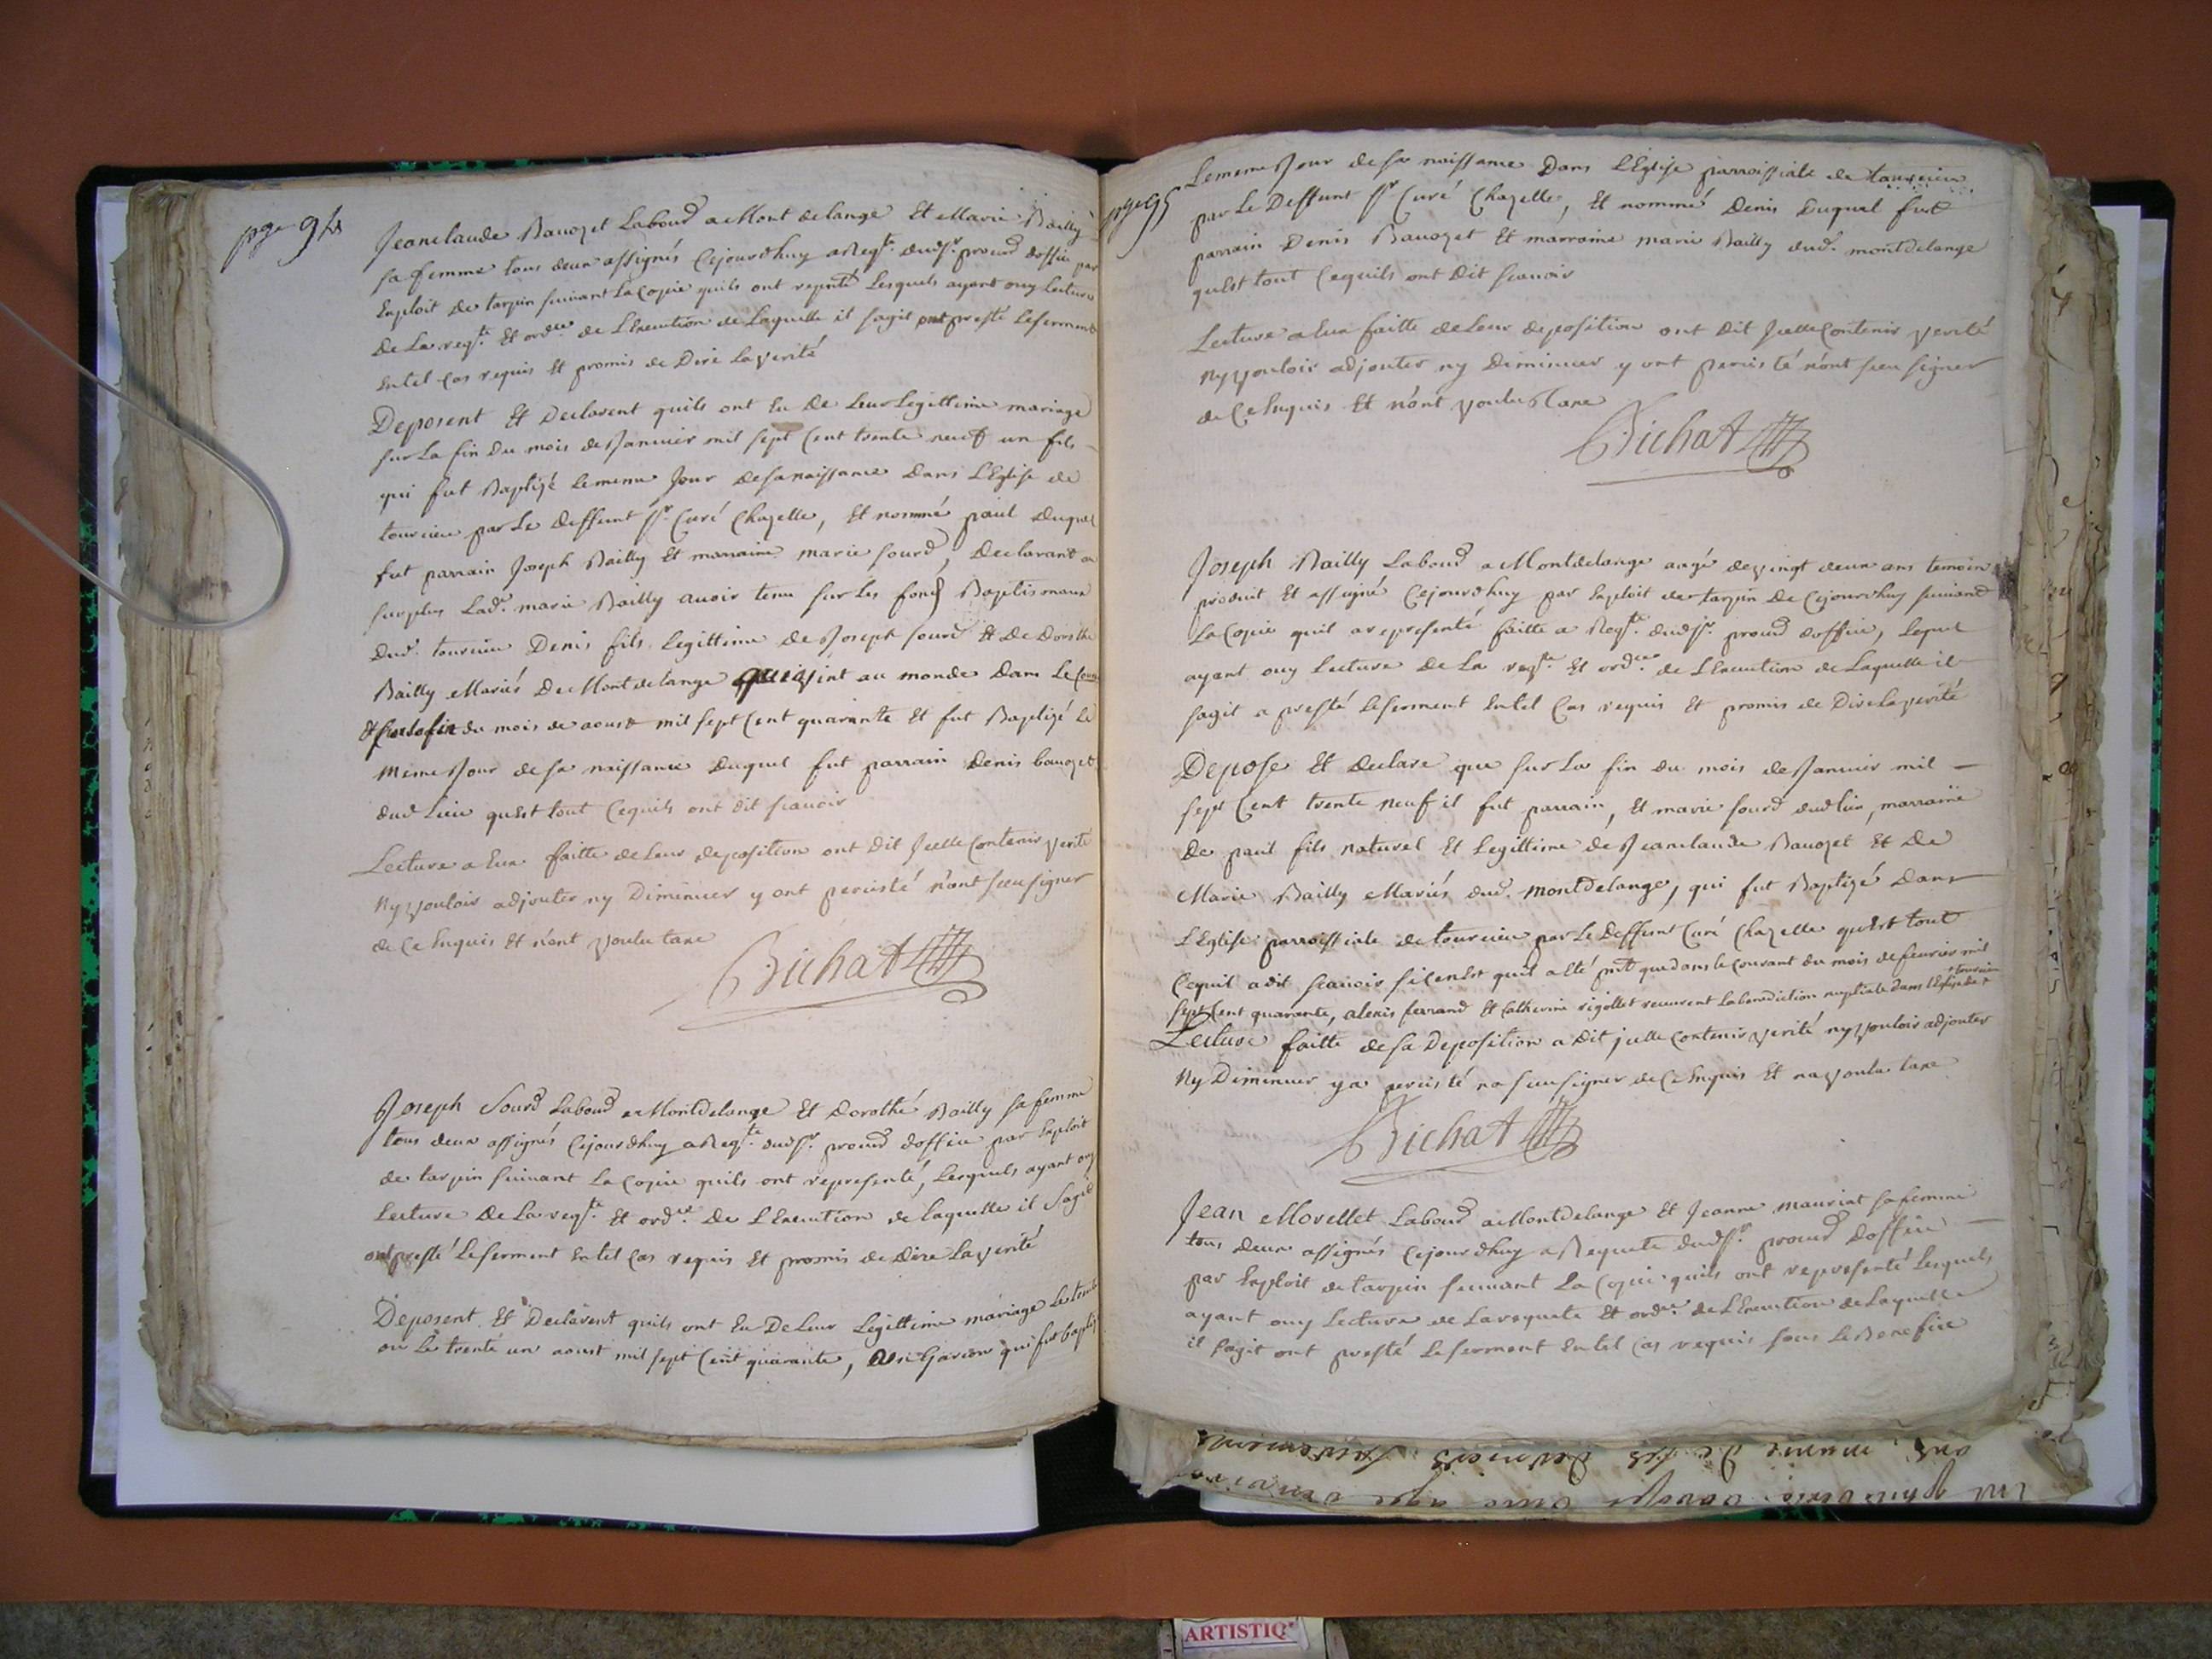 page 94
Jeanclaude Bauozet Labour a Montdelange Et Marie Bailly
sa femme tous deux assignés Cejourdhuy a Reqte. dudsr. procur doffice par
Exploit de tarpin suivant La Copie quils ont repnté Lesquels ayant ouy lecture
De La reqte. Et ordce. de L Execution de Laquelle il sagit ont presté Leserment
En tel Cas requis Et promis de Dire La verité
Deposent Et Declarent quils ont Eu De Leur Legittime mariage
sur La fin Du mois de Janvier mil sept Cent trente neuf un fils
qui fut Baptizé Lememe Jour desanaissance Dans L'Eglise de
tourcieu par Le deffunt sr. Curé Chazelle, Et nommé paul Duquel
fut parrain Joseph Bailly Et marraine marie sourd, Declarant au
surplus Lade. marie Bailly avoir tenu sur Les fonds Baptismaux
Dud. tourcieu Denis fils Legittime de Joseph sourd Et De Dorothé
Bailly Mariés De Montdelange qui vint au monde Dans Le Cour
Et sur la fin du mois de aoust mil sept Cent quarante Et fut Baptizé Le
meme Jour de sa naissance Duquel fut parrain Denis bauozet
dud Lieu quEst tout Cequils ont dit scavoir
Lecture a Eux faitte deleur deposition ont dit Jcelle Contenir verité
Ny vouloir adjouter ny Diminuer y ont percisté n'ont sceu signer
de Ce Enquis Et n'ont voulu taxe
Bichat
Joseph Sourd Labour a Montdelange Et Dorothé Bailly sa femme
tous deux assignés Cejourdhuy a Reqte. dudsr. procur doffice par Exploit
de tarpin suivant La Copie quils ont representé, Lesquels ayant ouy
Lecture De La reqte. Et ordce. De L Execution de laquelle il sagit
ont presté Leserment En tel Cas requis Et promis de Dire La verité
Deposent Et Declarent quils ont Eu DeLeur Legittime mariage Le trente
ou Le trente un aoust mil sept Cent quarante, un Garcon qui fut baptizé
page 95
Lememe Jour de sa naissance Dans L'Eglise parroissiale de tourcieu
par Le Deffunt sr Curé Chazelle, Et nommé Denis Duquel fut
parrain Denis Bauozet Et marraine marie Bailly dud. montdelange
quEst tout Cequils ont Dit scavoir
Lecture a Eux faitte deLeur deposition ont Dit Jcelle Contenir verité
Ny vouloir adjouter ny Diminuer y ont percisté n'ont sceu signer
de Ce Enquis Et n'ont voulu taxe
Bichat
Joseph Bailly Labour a Montdelange aagé de vingt deux ans temoin
produit Et assigné Cejourdhuy par Exploit de tarpin De Cejourdhuy suivant
La Copie quil a representé faitte a Reqte. dudsr. procur doffice, Lequel
ayant ouy Lecture De La reqte Et ordce. de L Execution de Laquelle il
sagit a presté Leserment En tel Cas requis Et promis de Dire La verité
Depose Et declare que sur La fin du mois de Janvier mil
sept Cent trente Neuf il fut parrain, Et marie sourd dudlieu, marraine
De paul fils naturel Et Legittime de Jeanclaude Bauozet Et De
Marie Bailly Mariés dud. montdelange, qui fut Baptizé Dans
L'Eglise parroissiale de tourcieu par Le Deffunt Curé Chazelle quEst tout
Cequil a dit scavoir si cen Est quil a Eté pnt que dans le Courant du mois de fevrier mil
sept Cent quarante, alexis ferrand Et Catherine rigollet receurent La benediction nuptiale dans L'Eglise de +
+ tourcieu
Lecture faitte de sa Deposition a Dit jcelle Contenir verité ny vouloir adjouter
Ny Diminuer y a percisté na sceu signer de Ce Enquis Et na voulu taxe
Bichat
Jean Morellet Labour a Montdelange Et Jeanne mauriat sa femme
tous deux assignés Cejourdhuy a Requete dudsr. procur Doffice
par Exploit de tarpin suivant La Copie quils ont representé Lesquels
ayant ouy Lecture de La requete Et ordce. de L Execution de Laquelle
il sagit ont presté Leserment En tel Cas requis sous Le Benefice
ARTISTIQ